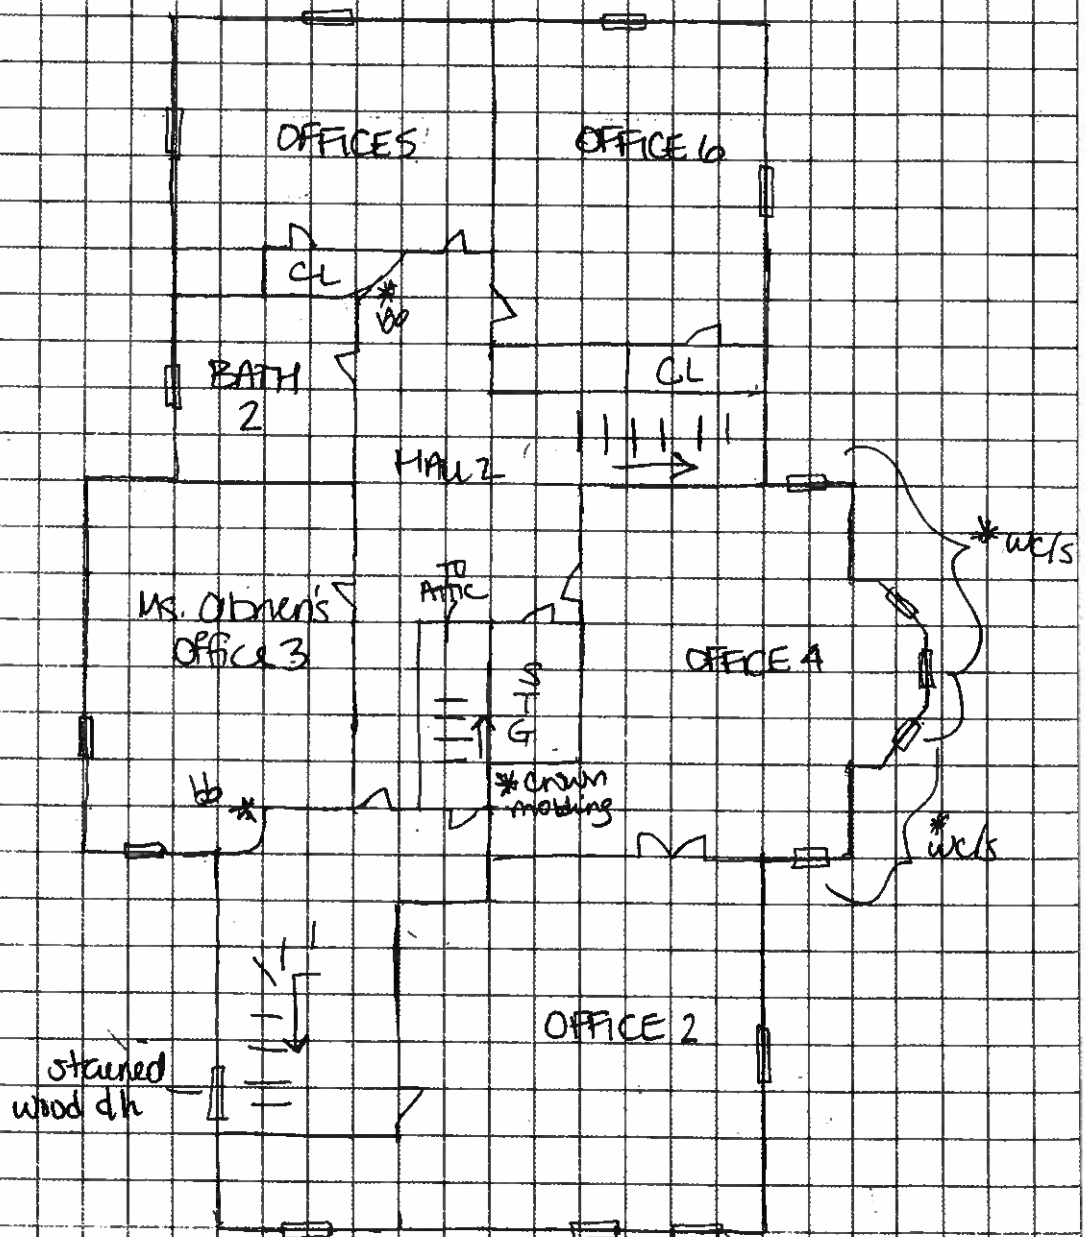 OFFICE 5
OFFICE 6
CL
*
BATH
2
CL
HALL 2
* wc/s
TO
ATTIC
Ms. Obrien's
Office 3
OFFICE 4
STG
bb *
* crown
molding
*
wc/s
OFFICE 2
stained
wood dh